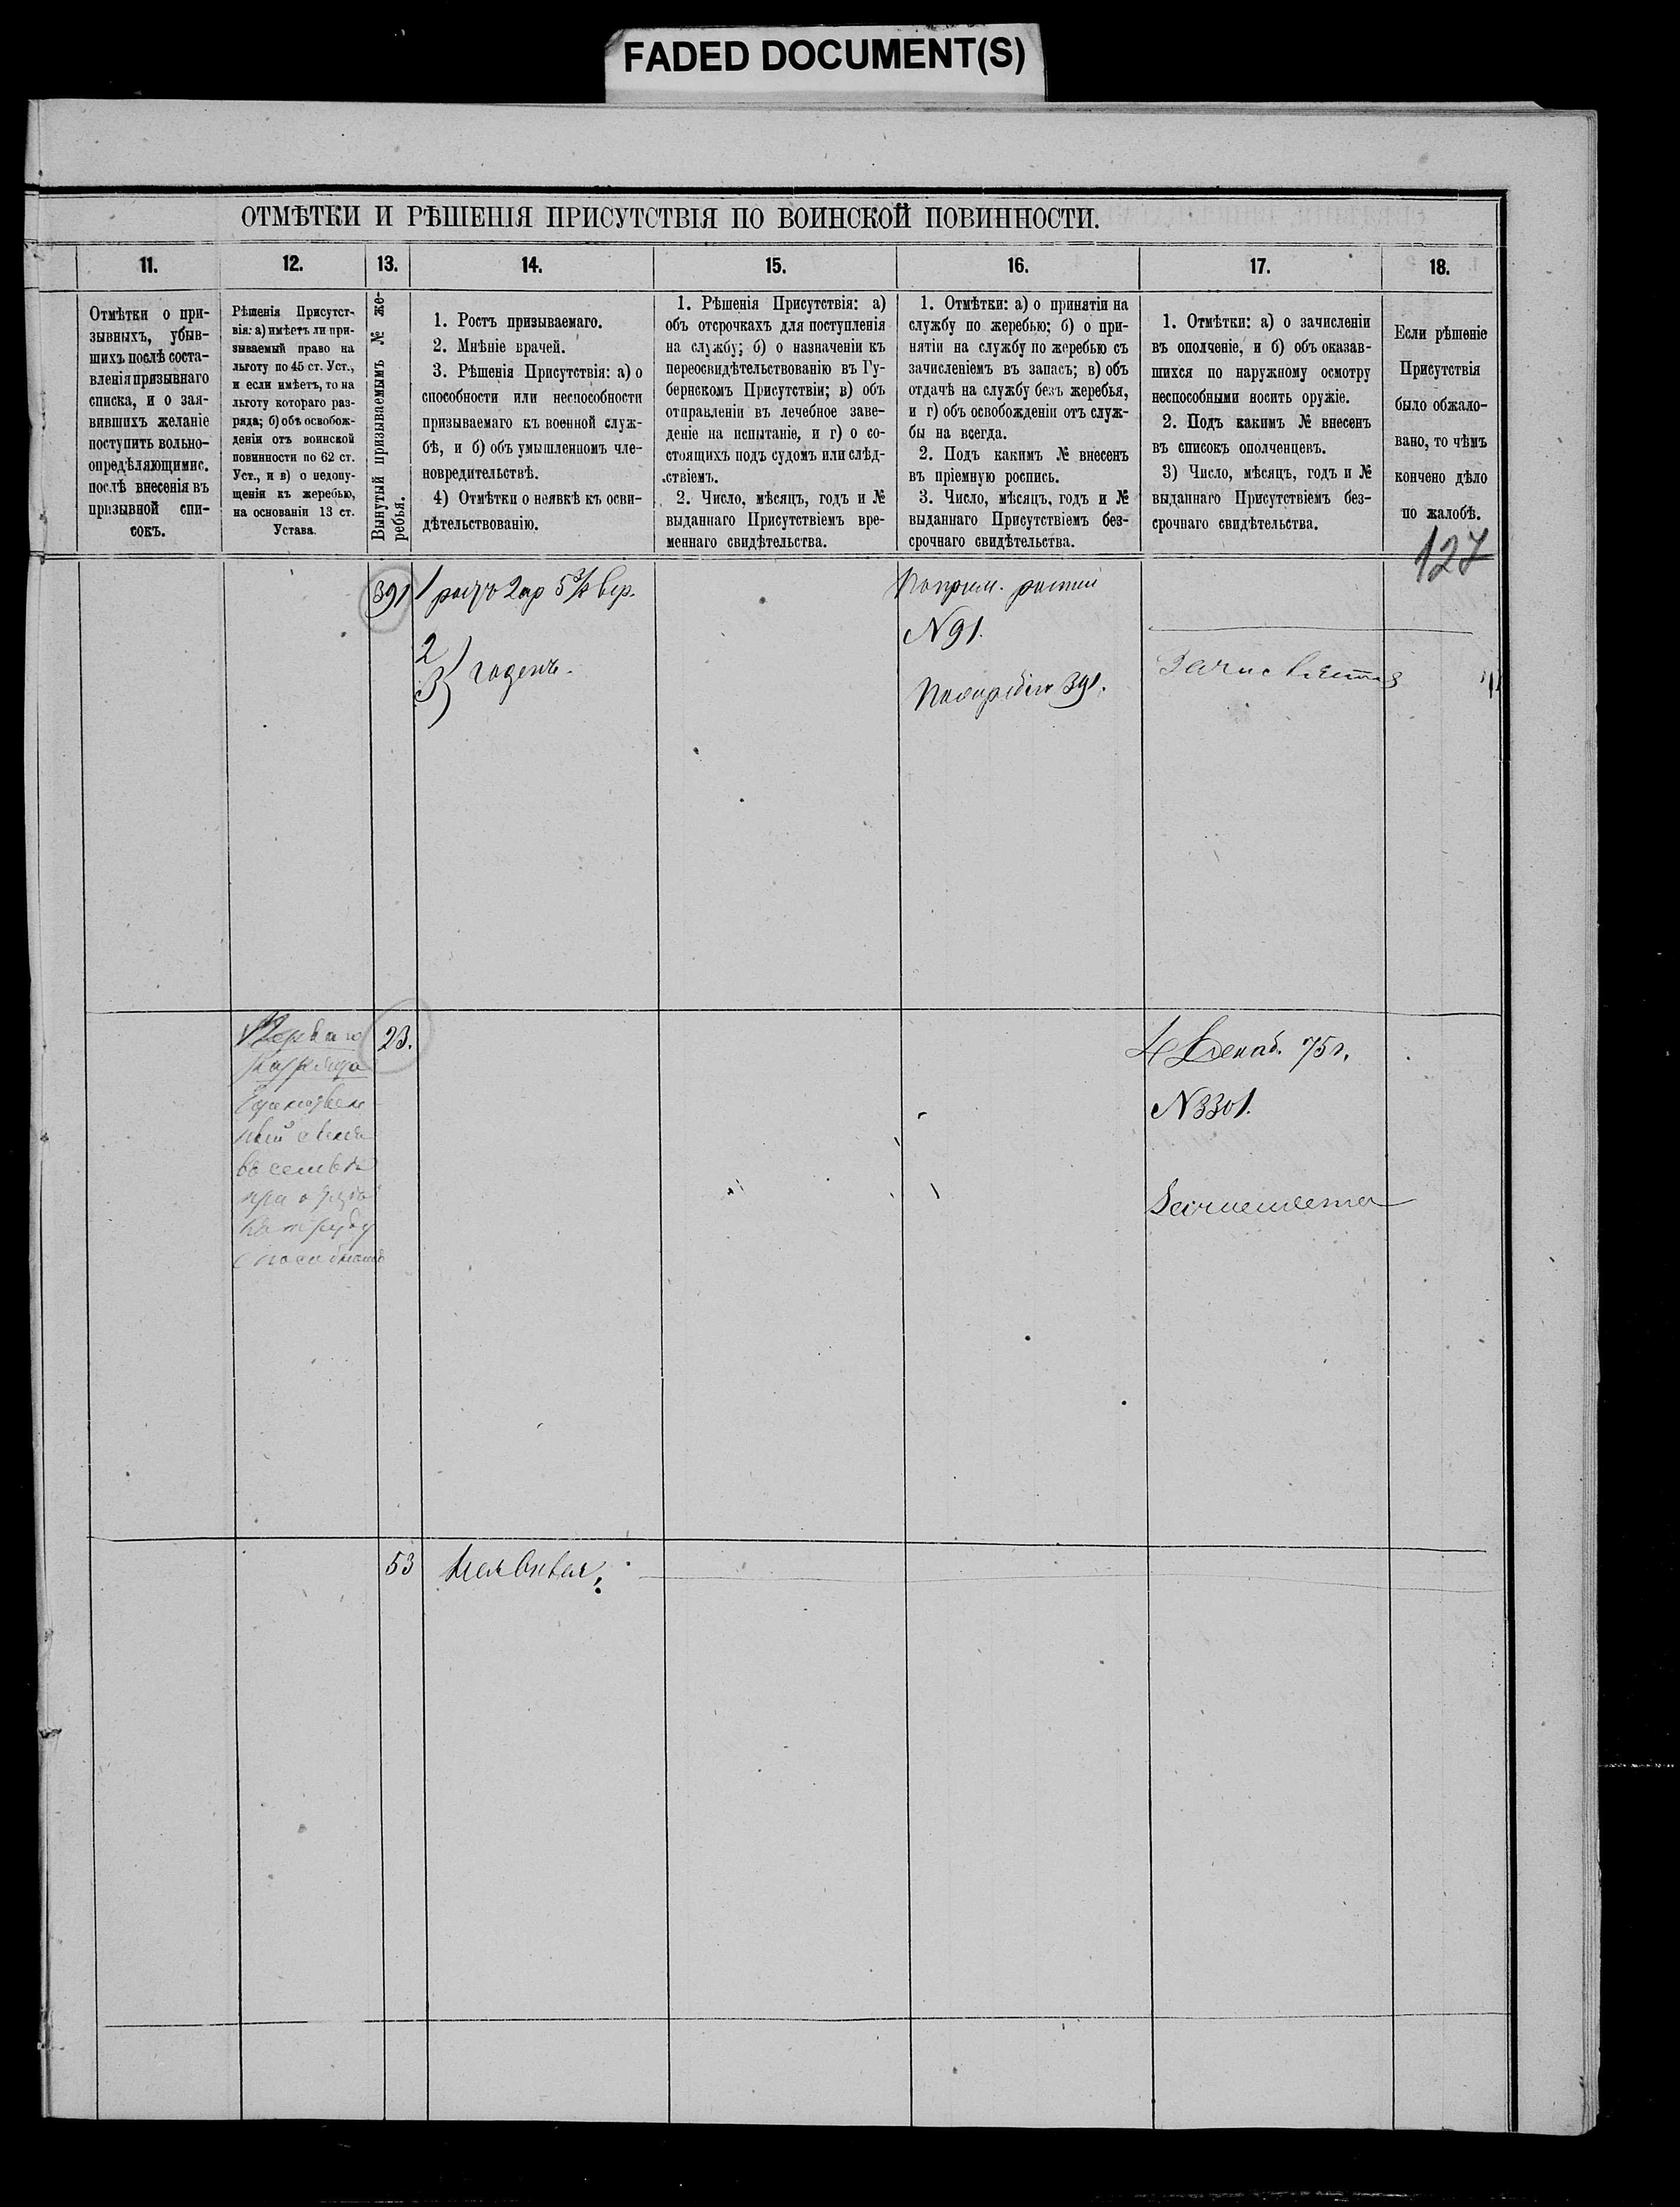 FADED DOCUMENT(S)
ОТМѢТКИ И РѢШЕНІЯ ПРИСУТСТВІЯ ПО ВОИНСКОЙ ПОВИННОСТИ.
11.
12.
13.
14.
15.
16.
17.
18.
Отмѣтки о при-
зывныхъ, убыв-
шихъ послѣ соста-
вленія призывнаго
списка, и о зая-
вившихъ желаніе
поступить вольно-
опредѣляющимис.
послѣ внесенія въ
призывной спи-
сокъ.
Рѣшенія Присутст-
вія: а) имѣетъ ли при-
зываемый право на
льготу по 45 ст. Уст.,
и если имѣетъ, то на
льготу котораго раз-
ряда; б) объ освобож-
деніи отъ воинской
повинности по 62 ст.
Уст., и в) о недопу-
щеніи къ жеребью,
на основаніи 13 ст.
Устава.
Вынутый призываемымъ № же-
ребья.
1. Ростъ призываемаго.
2. Мнѣніе врачей.
3. Рѣшенія Присутствія: а) о
способности или неспособности
призываемаго къ военной служ-
бѣ, и б) объ умышленномъ чле-
новредительствѣ.
4) Отмѣтки о неявкѣ къ осви-
дѣтельствованію.
1. Рѣшенія Присутствія: а)
объ отсрочкахъ для поступленія
на службу; б) о назначеніи къ
переосвидѣтельствованію въ Гу-
бернскомъ Присутствіи; в) объ
отправленіи въ лечебное заве-
деніе на испытаніе, и г) о со-
стоящихъ подъ судомъ или слѣд-
ствіемъ.
2. Число, мѣсяцъ, годъ и №
выданнаго Присутствіемъ вре-
меннаго свидѣтельства.
1. Отмѣтки: а) о принятіи на
службу по жеребью; б) о при-
нятіи на службу по жеребью съ
зачисленіемъ въ запасъ; в) объ
отдачѣ на службу безъ жеребья,
и г) объ освобожденіи отъ служ-
бы на всегда.
2. Подъ какимъ № внесенъ
въ пріемную роспись.
3. Число, мѣсяцъ, годъ и №
выданнаго Присутствіемъ без-
срочнаго свидѣтельства.
1. Отмѣтки: а) о зачисленіи
въ ополченіе, и б) объ оказав-
шихся по наружному осмотру
неспособными носить оружіе.
2. Подъ какимъ № внесенъ
въ списокъ ополченцевъ.
3) Число, мѣсяцъ, годъ и №
выданнаго Присутствіемъ без-
срочнаго свидѣтельства.
Если рѣшеніе
Присутствія
было обжало-
вано, то чѣмъ
кончено дѣло
по жалобѣ.
127
391
1 ростъ 2 ар 5 вер.
2
3) годенъ.
N 91.
391.
Перваго
разряда
23.
4 Декаб. 75 г.
N 3301.
53